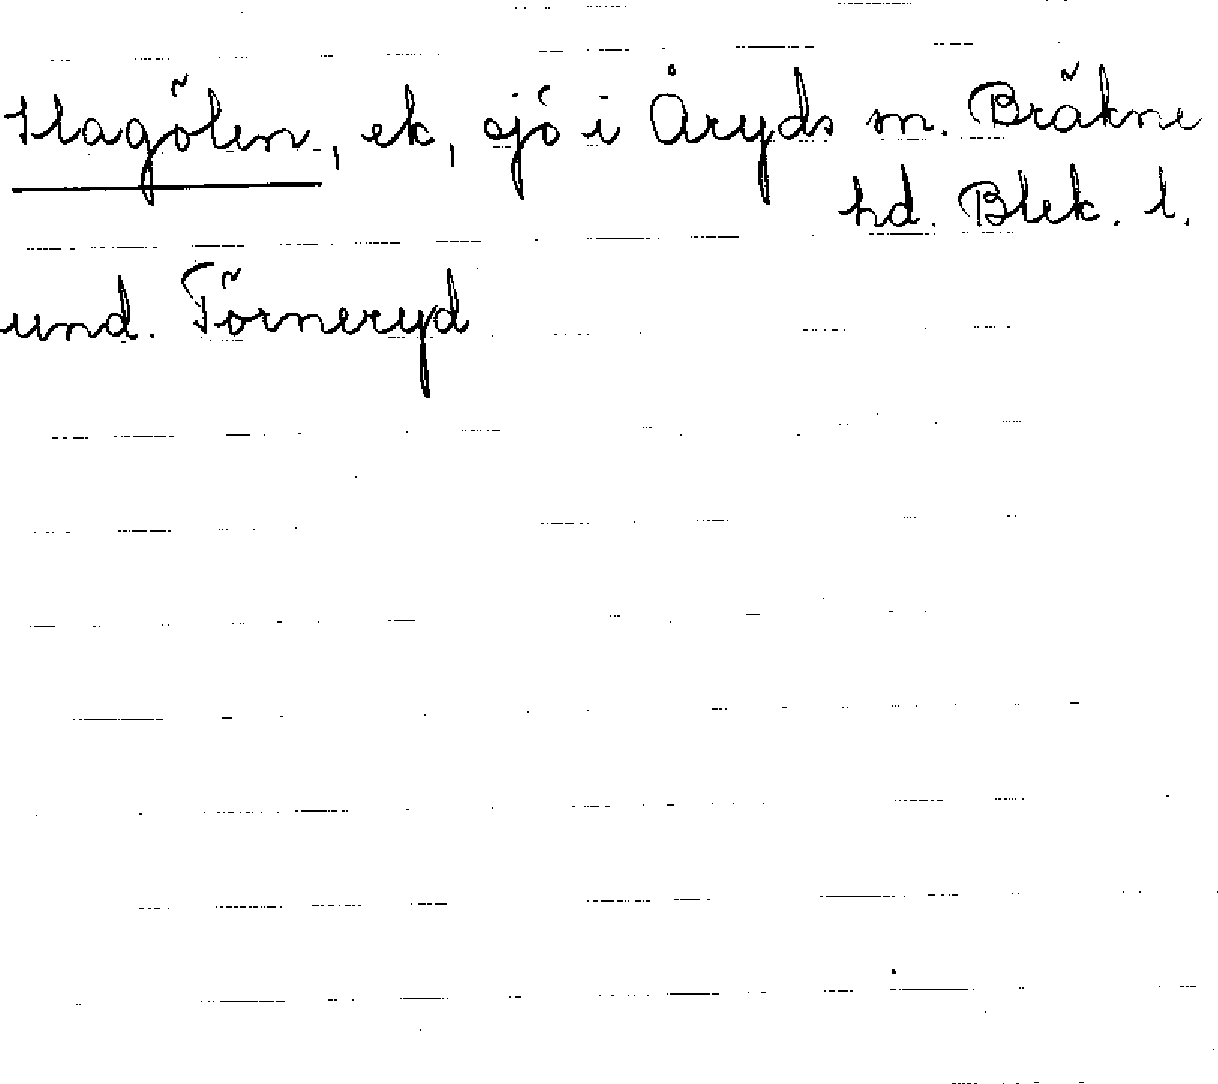 Hagölen, ek, sjö i Åryds sn. Bräkne
hd. Blek. l.
und. Törneryd